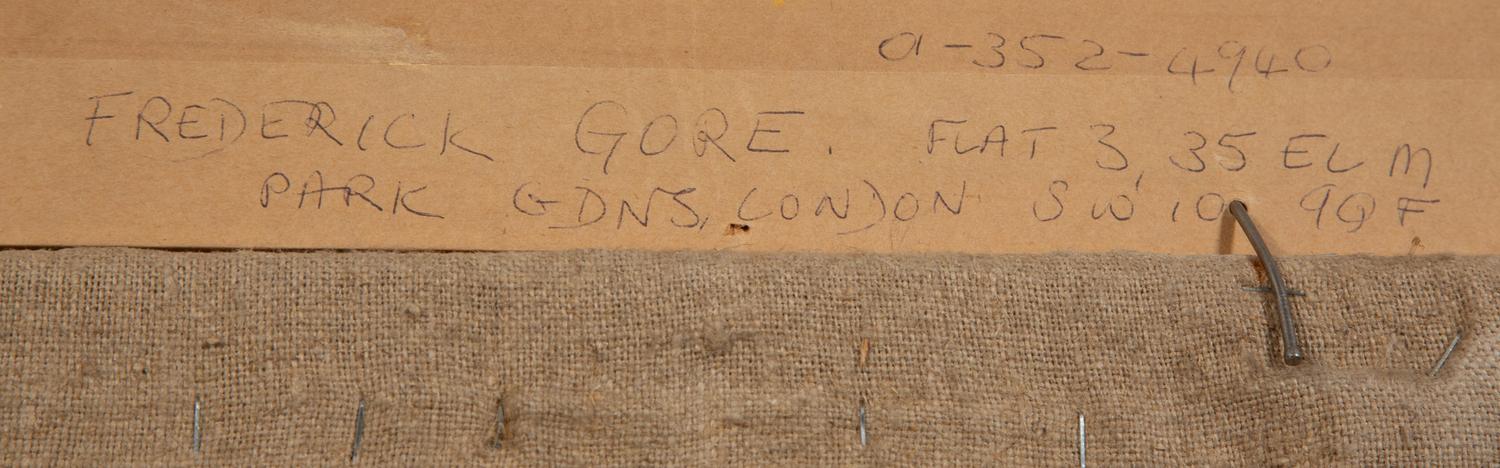 01-352-4940
FREDERICK GORE. FLAT 3, 35 ELM
PARK GDNS, LONDON SW10 9QF